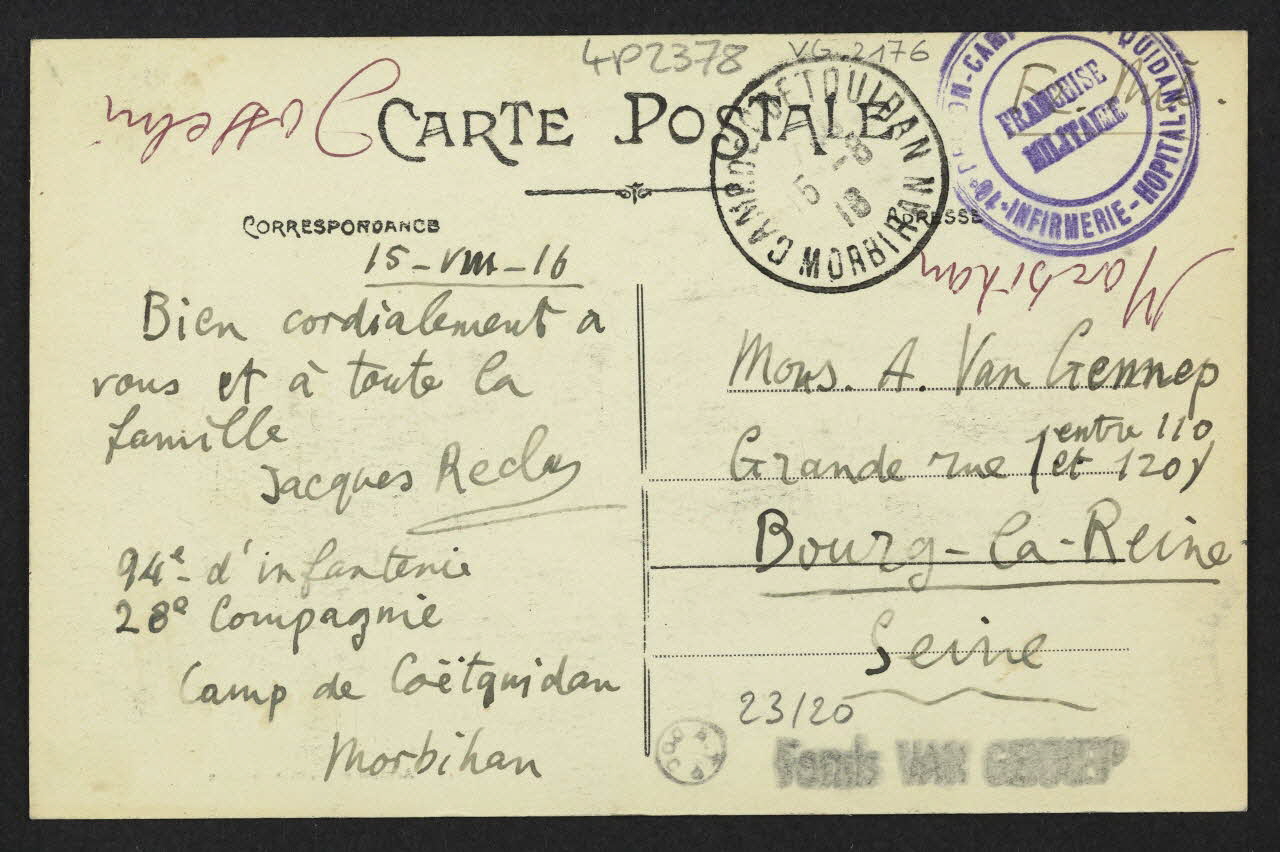 4P2378 VG 2176
Josselin
CARTE POSTALE
F. M.
CAMP DE COETQUIDAN MORBIHAN
15 -8 16
FRANCHISE
MILITAIRE
10e - INFIRMERIE - HOPITAL
CORRESPONDANCE
ADRESSE
Morbihan
15 - VIII - 16
Bien cordialement a
vous et à toute la
famille
Jacques Reclus
94e d'infanterie
28e Compagnie
Camp de Coëtquidan
Morbihan
Mons. A. Van Gennep
Grande rue (entre 110
et 120)
Bourg-la-Reine
Seine
23/20
Fonds VAN GENNEP